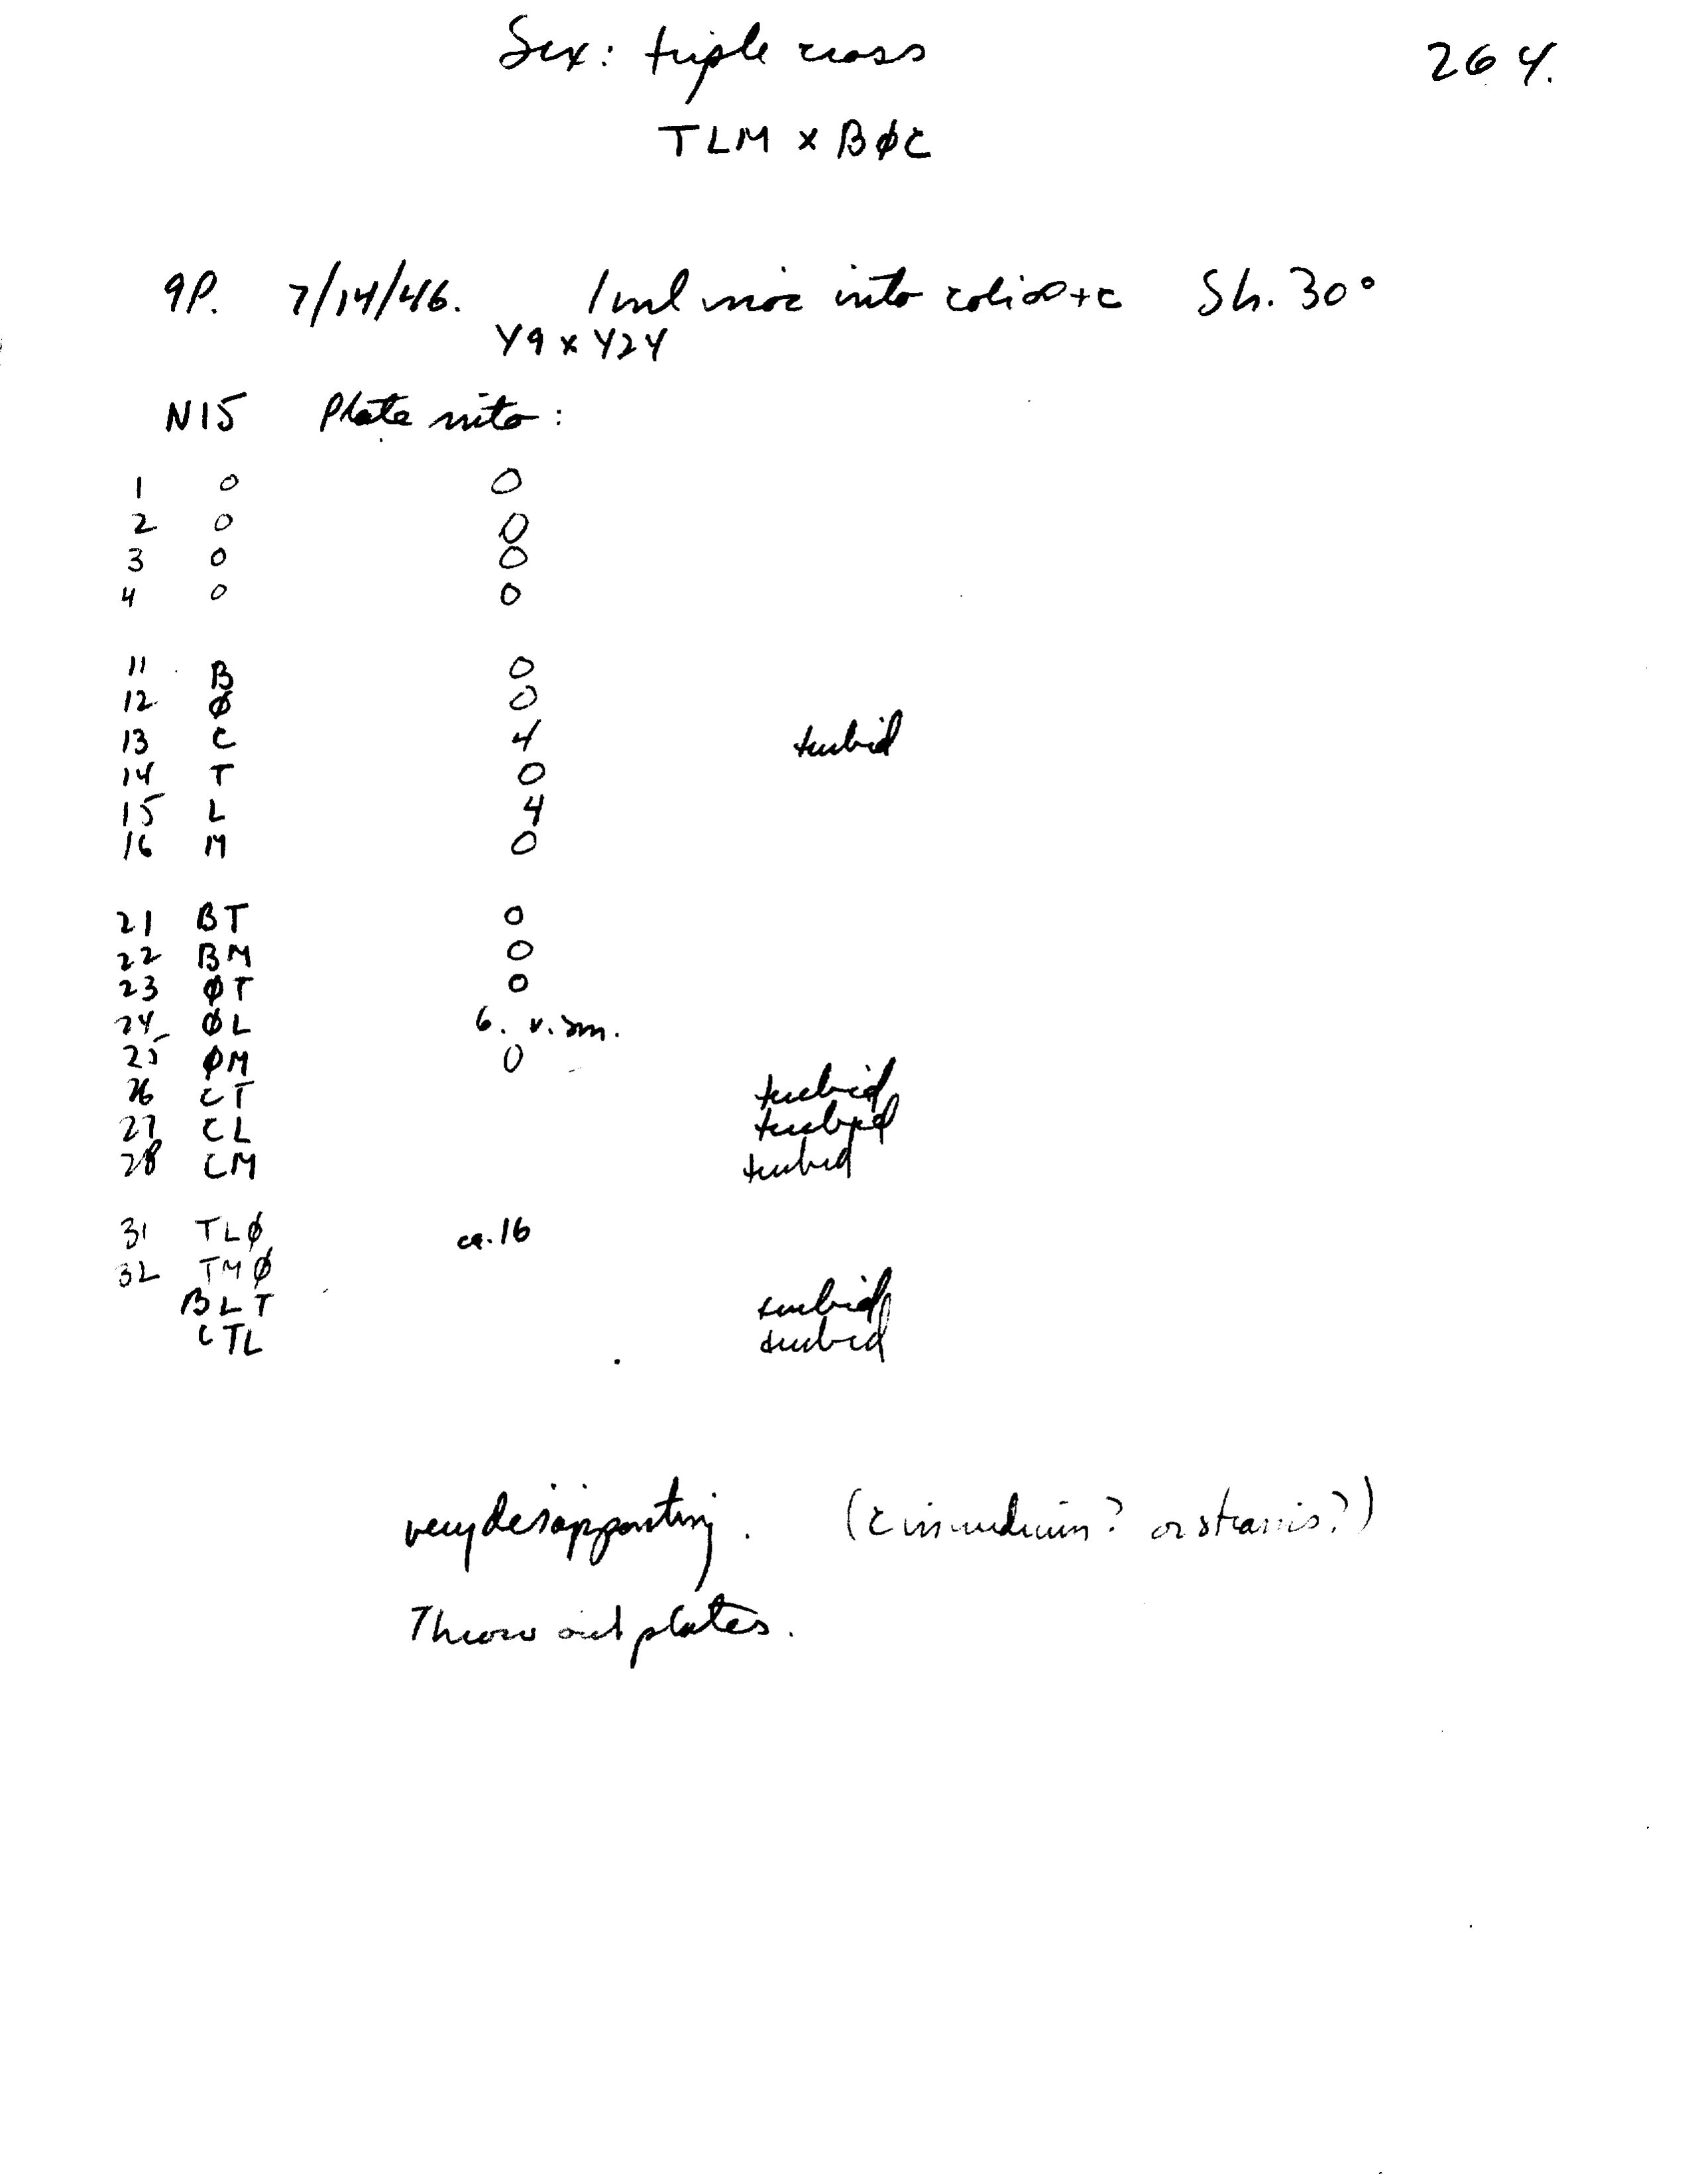 Sex: triple cross 264.
TLM x BØC
9P. 7/14/46. 1 ml inoc into coli∞+c Sh. 30°
Y9 x Y24
N15 Plate into:
1 0 0
2 0 0
3 0 0
4 0 0
11 B 0
12 Ø 0
13 C 4 turbid
14 T 0
15 L 4
16 M 0
21 BT 0
22 BM 0
23 ØT 0
24 ØL 6. v. sm.
25 ØM 0
26 CT turbid
27 CL turbid
28 CM turbid
31 TLØ ca. 16
32 TMØ
BLT turbid
CTL turbid
very disappointing. (c in medium? or strains?)
Throw out plates.